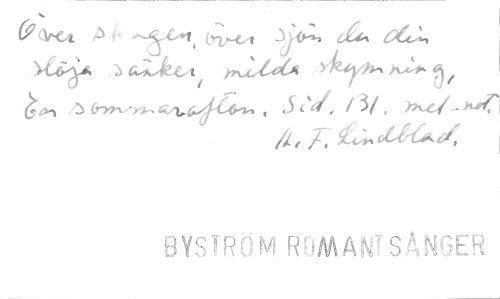 Över skogen, över sjön du din
slöja sänker, milda skymning,
En sommarafton. Sid. 131. mel-not.
A. F. Lindblad.
BYSTRÖM ROMANTSÅNGER